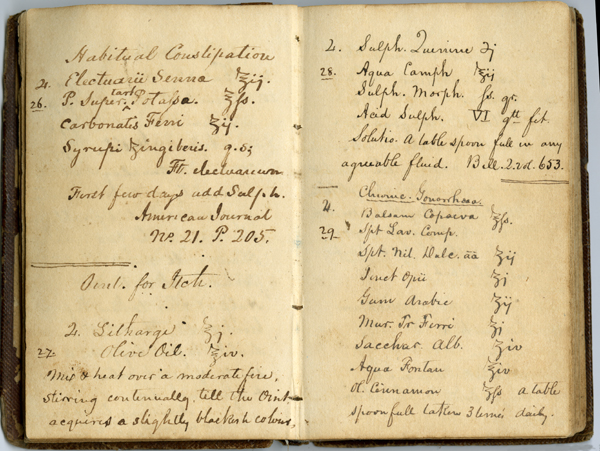 Habitual Constipation
2. Electuarii Senna ℥ij.
26. P. Super tart. Potassa. ℥fs.
Carbonatis Ferri ℥ij.
Syrupi Zingiberis. q.s;
Ft. electuarium
First few days add Sulph.
American Journal
No. 21. P. 205.
Oint. for Itch.
2. Litharge ℥j.
27. Olive Oil. ℥iv.
Mix & heat over a moderate fire,
stirring continually, till the Oint
acquires a slightly blackish colour.
2. Sulph. Quinine ʒj
28. Aqua Camph ℥ij
Sulph. Morph. fs. gr.
Acid Sulph. VI gtt fit.
Solutio. A table spoon full in any
agreeable fluid. Bell. 2. vol. 653.
Chronic Gonorrhoea.
2. Balsam Copaeva ℥fs.
29. Spt Lav. Comp.
Spt. Nit. Dulc. āā ℥ij
Tinct Opii ℥j
Gum Arabic ℥ij
Mur. Tr Ferri ℥j
Sacchar. Alb. ℥iv
Aqua Fontan ℥iv
Ol. Cinnamon ℥fs a table
spoonfull taken 3 times daily.